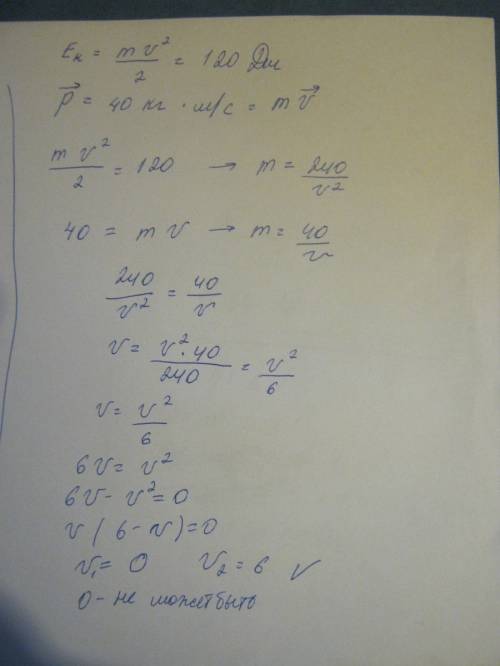 Eк = mv²/2 = 120 Дж
p⃗ = 40 кг · м/с = mv⃗
mv²/2 = 120 → m = 240/v²
40 = mv → m = 40/v
240/v² = 40/v
v = v²·40/240 = v²/6
v = v²/6
6v = v²
6v - v² = 0
v(6 - v) = 0
v₁ = 0 v₂ = 6 v
0 - не может быть